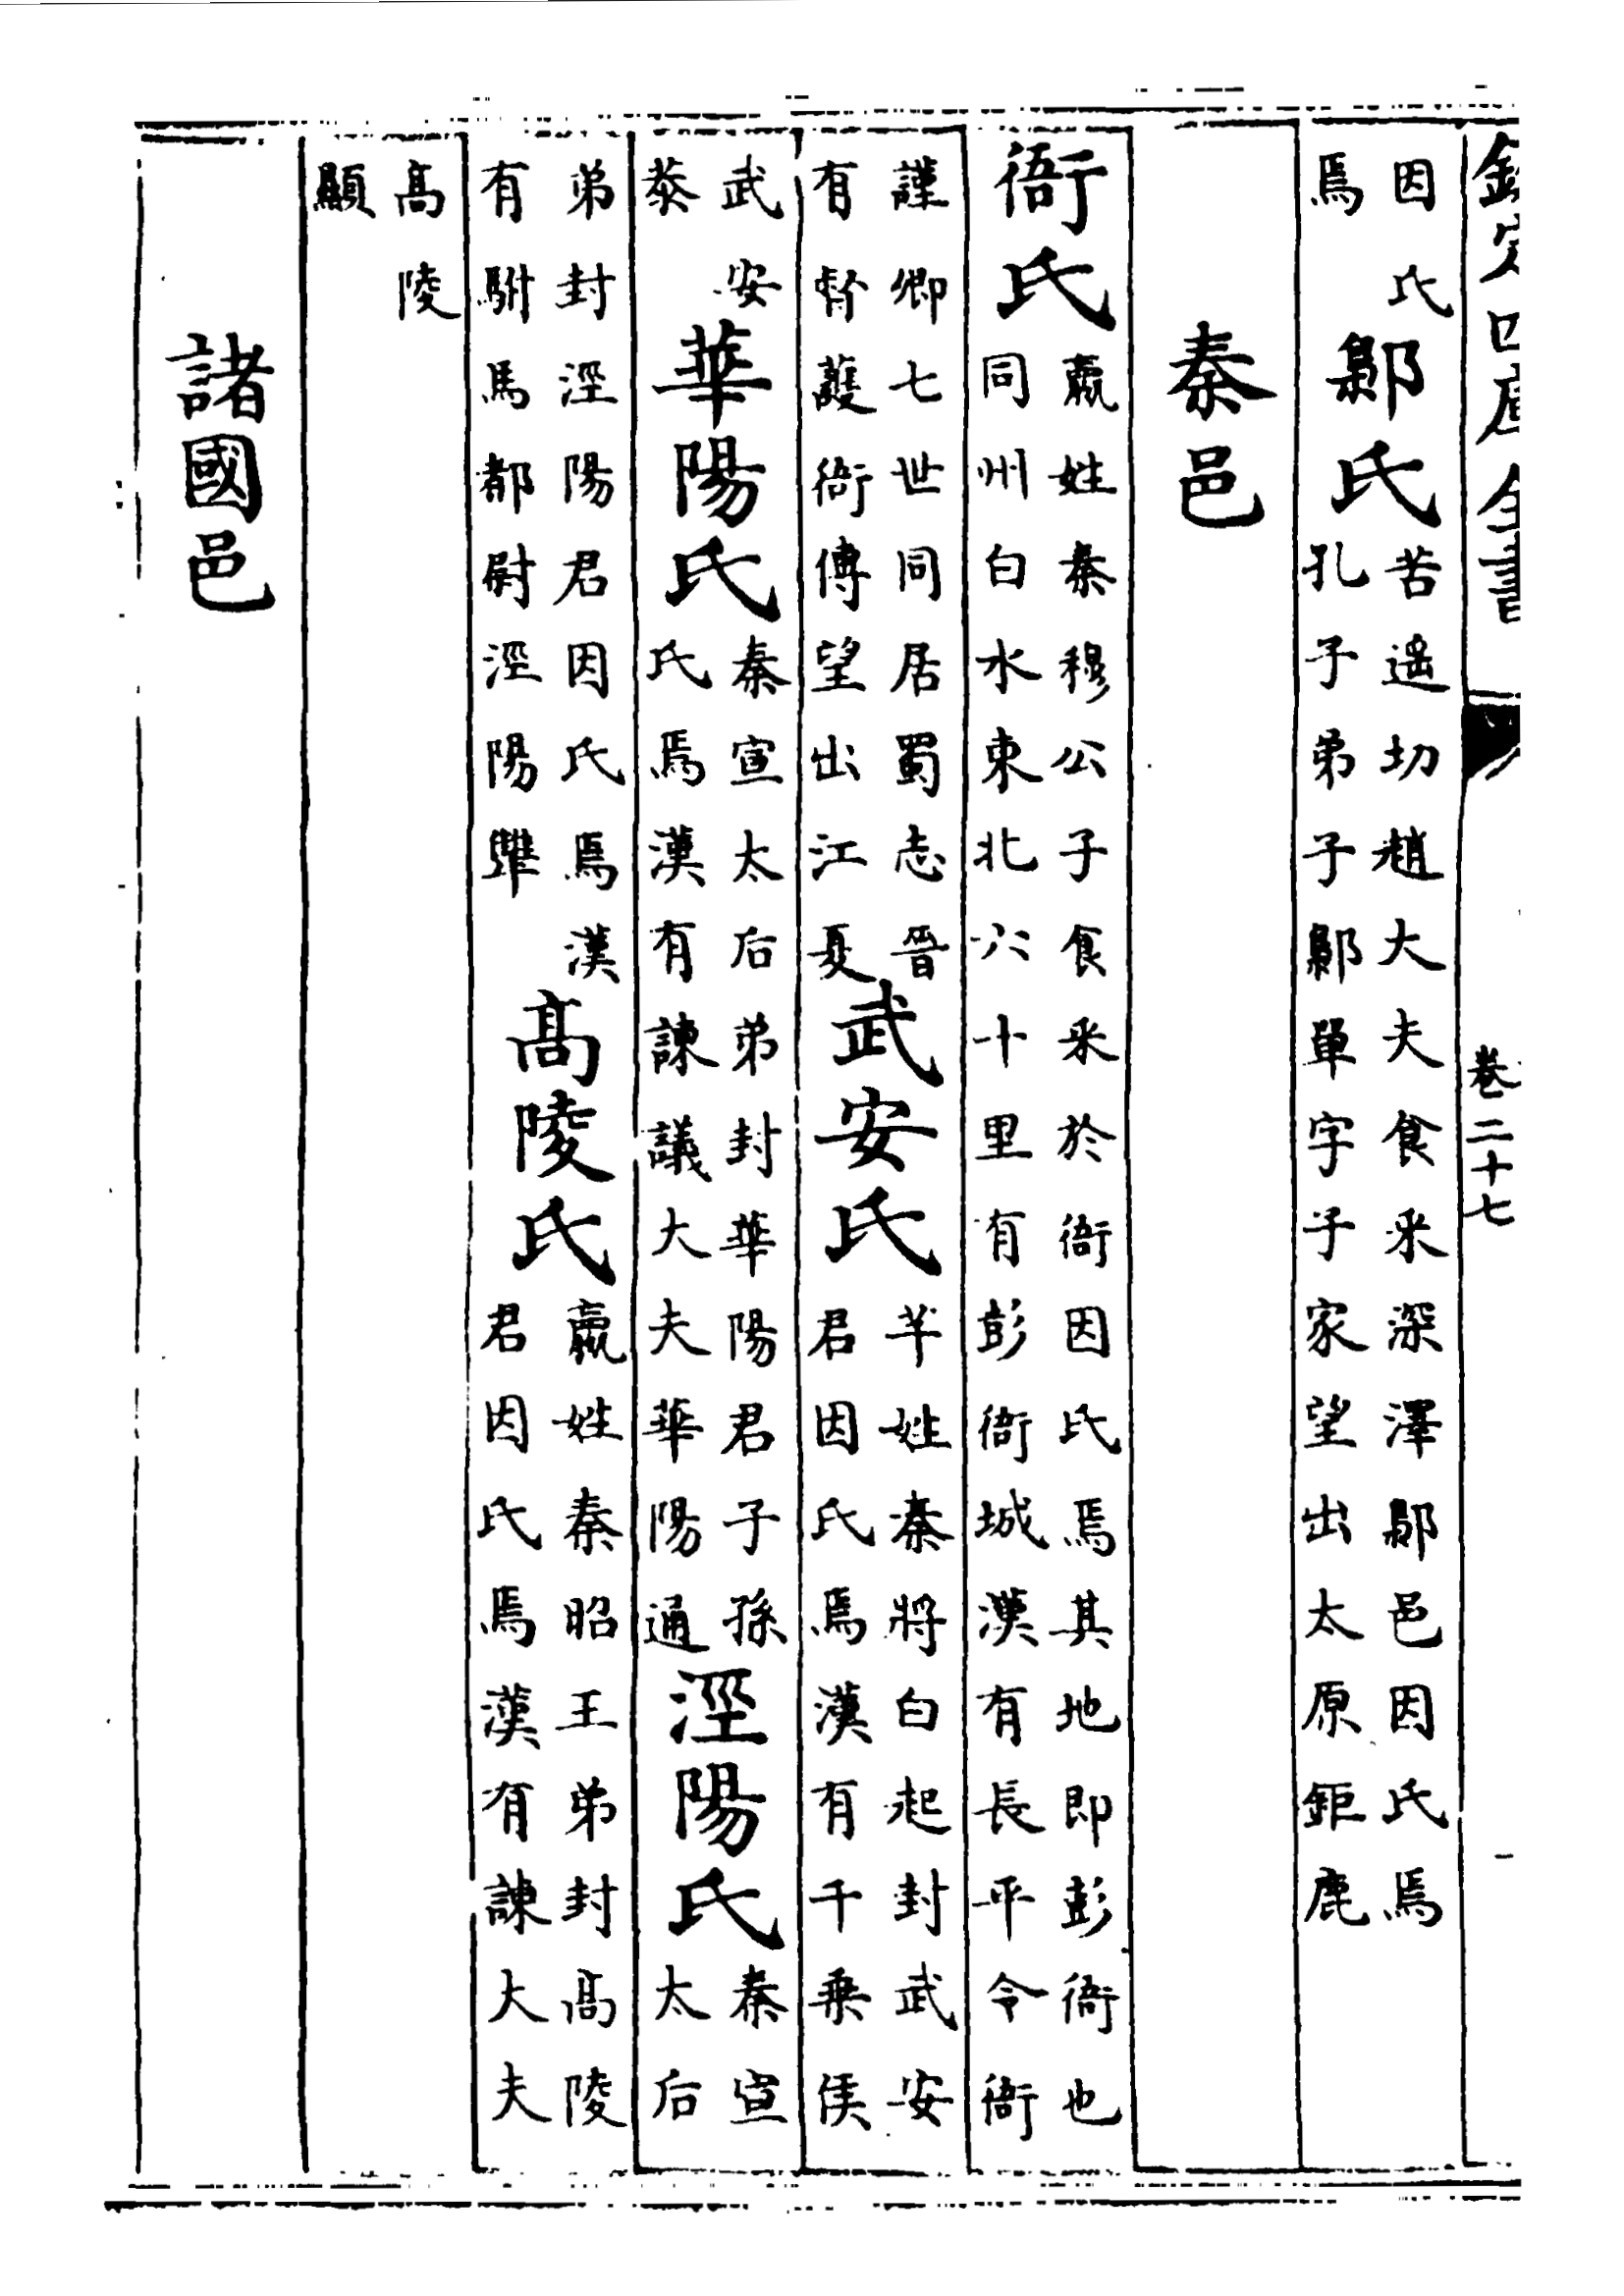 欽定四庫全書 卷二十七
因氏焉鄡氏苦遥切趙大夫食采深澤鄡邑因氏焉孔子弟子鄡單字子家望出太原鉅鹿
秦邑
衙氏嬴姓秦穆公子食采於衙因氏焉其地即彭衙也同州白水東北六十里有彭衙城漢有長平令衙
謹卿七世同居蜀志晉有督護衙傅望出江夏武安氏芊姓秦將白起封武安君因氏焉漢有千乗侯
武安恭華陽氏秦宣太后弟封華陽君子孫氏焉漢有諫議大夫華陽通涇陽氏秦宣太后
弟封涇陽君因氏焉漢有駙馬都尉涇陽犨髙陵氏嬴姓秦昭王弟封髙陵君因氏焉漢有諫大夫
髙陵顯
諸國邑